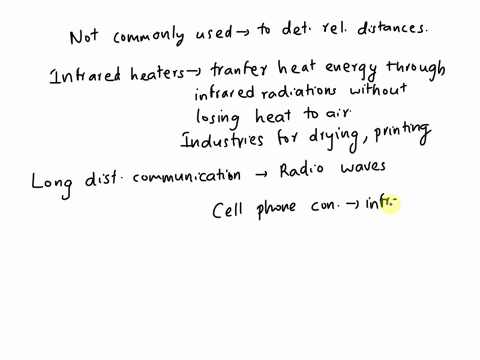 Not commonly used → to det. rel. distances.
Infrared heaters → tranfer heat energy through
infrared radiations without
losing heat to air.
Industries for drying, printing
Long dist. communication → Radio waves
Cell phone con. → infr.